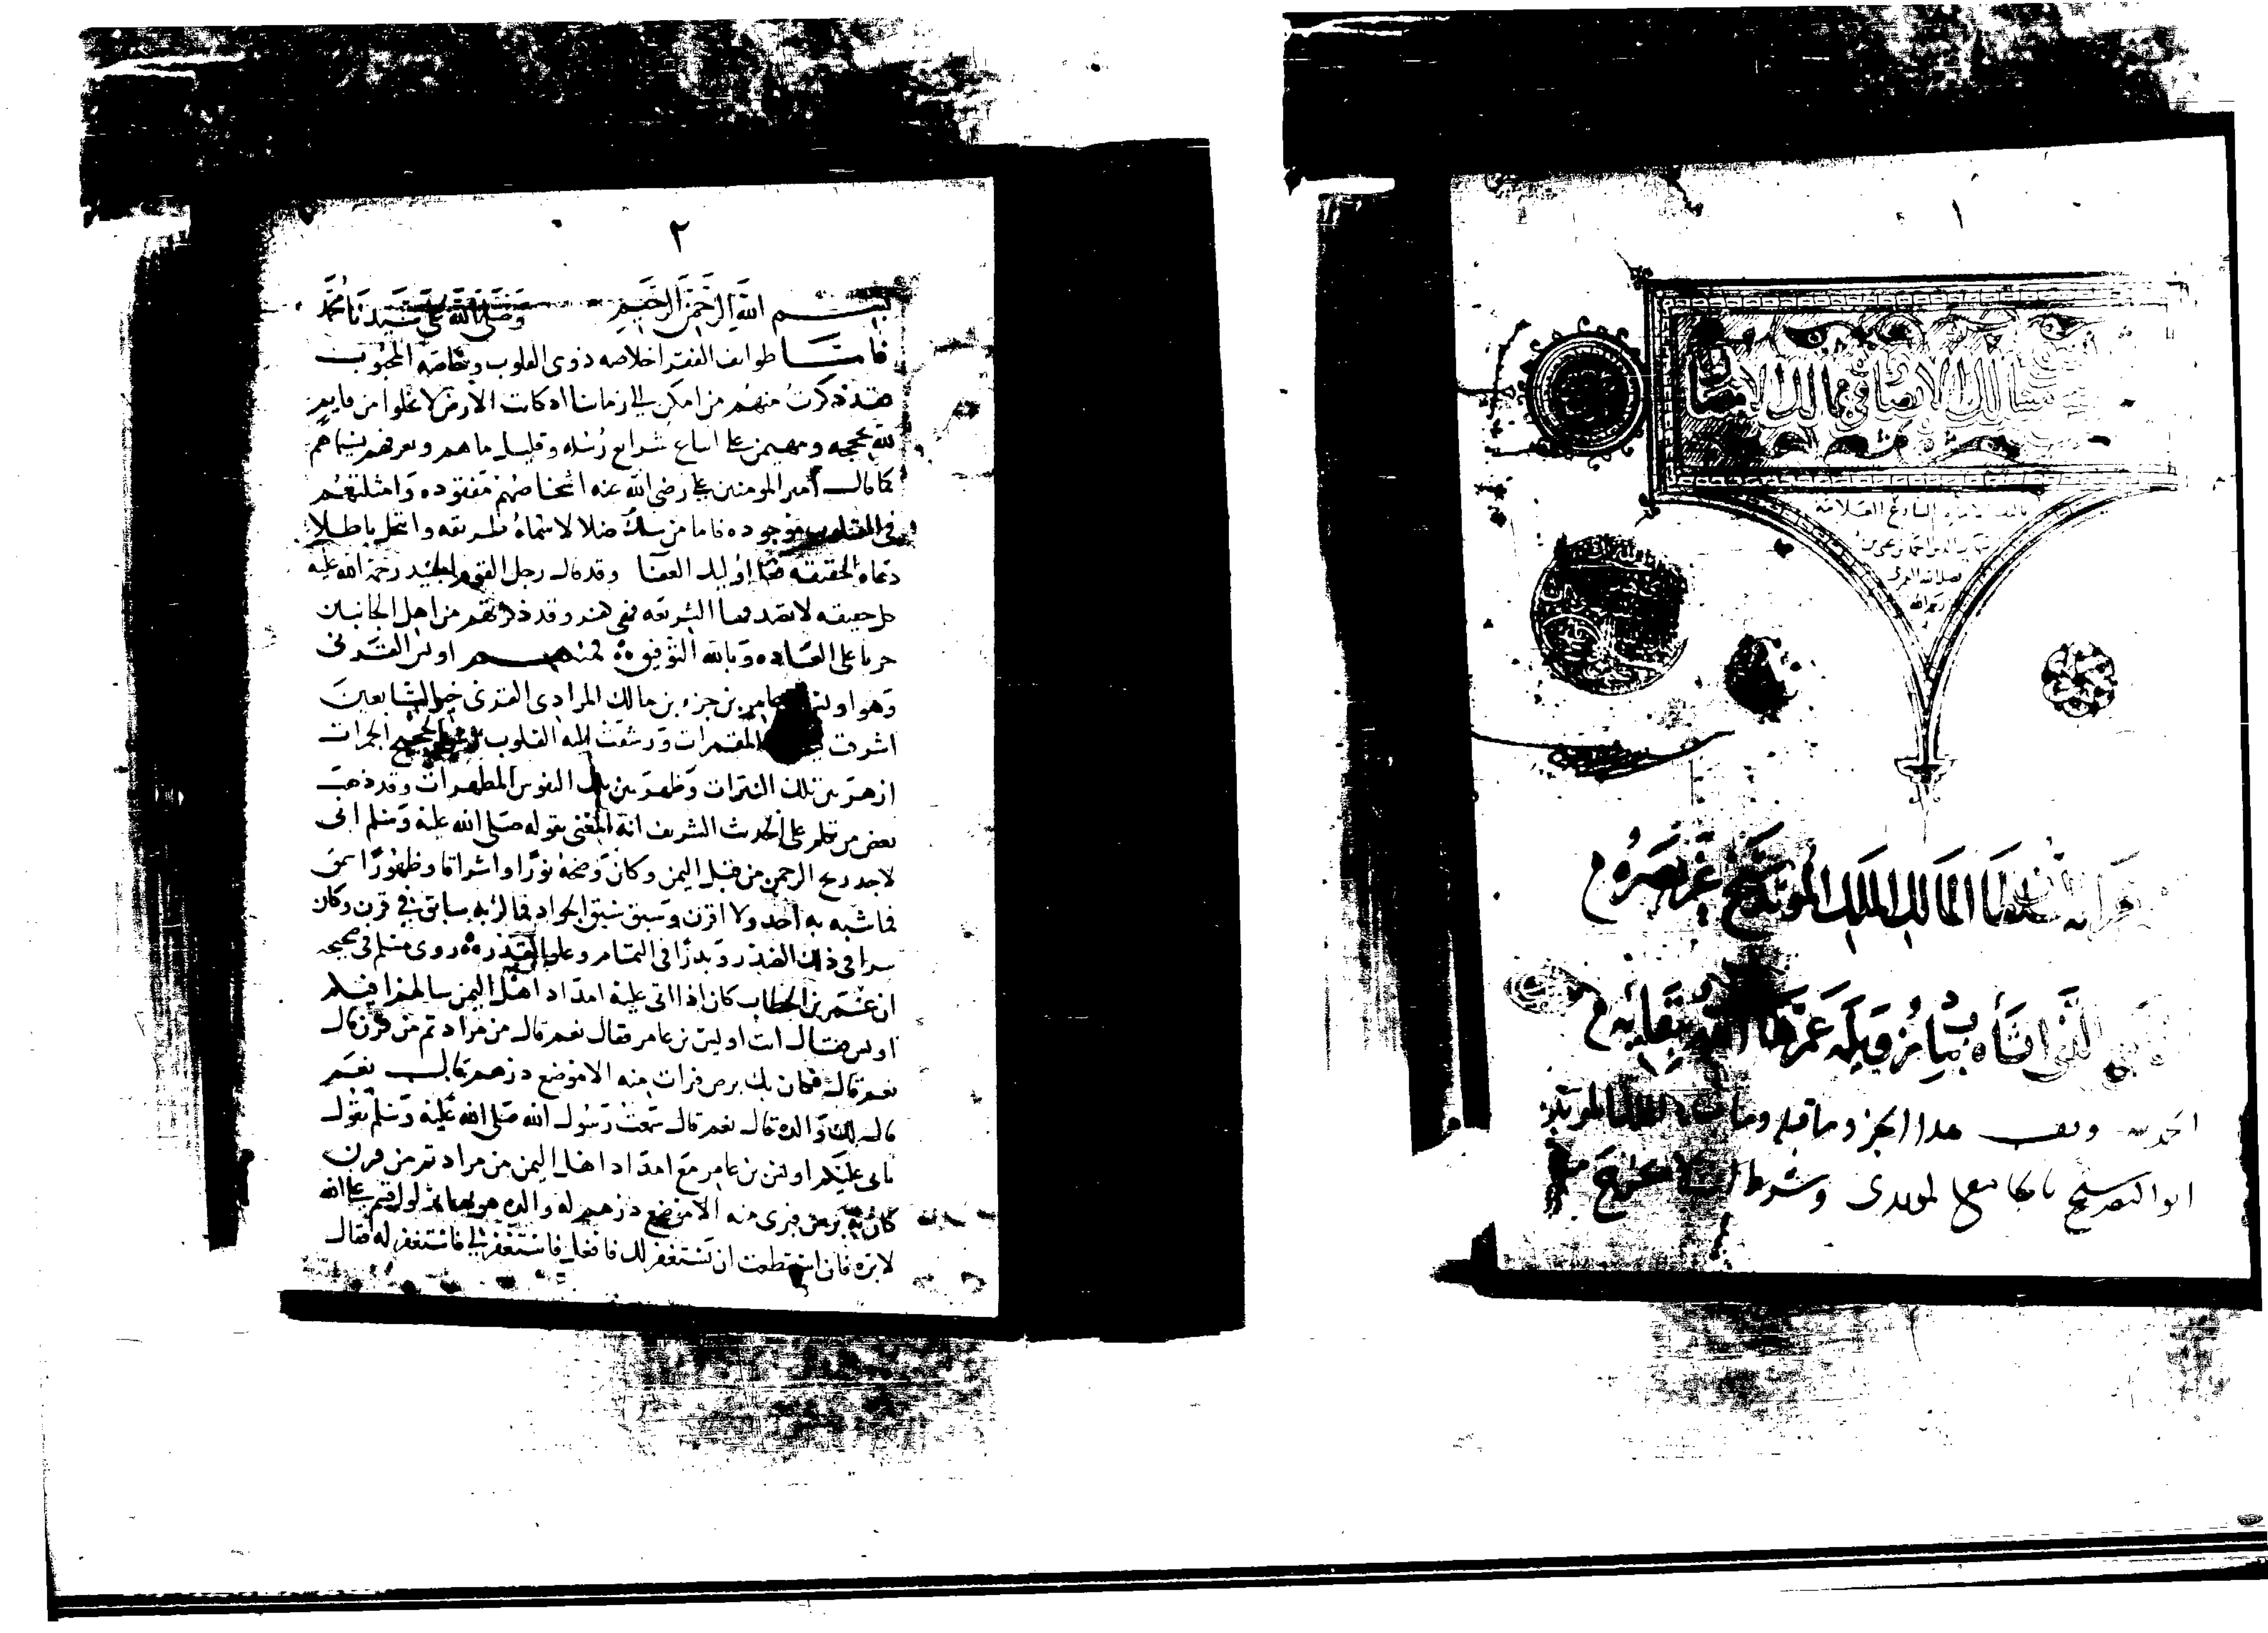 ١
مسالك الابصار في ممالك الامصار
تاليف
احمد بن يحيى بن
فضل الله العمري
رحمه الله
المالك الملك المويد شيخ عز نصره
انشاه بباب زويلة عمرها الله ببقائه
الحمد لله وقف هذا الجزو وما قبله وما المويد
ابو النصر شيخ بالجامع المويدى وشرط ان لا يخرج منه
٢
بسم الله الرحمن الرحيم وصلى الله على سيدنا محمد
فاما طوايف الفقرا خلاصه ذوى القلوب وخاصه المحبوب
فقد ذكرت منهم من امكن في زماننا اذ كانت الارض لا تخلوا من قايم
لله بحجه ومهيمن على اتباع شرايع رسله وقليل ما هم وتعرفهم بسيماهم
كما قال امير المومنين على رضى الله عنه اشخاصهم مفقوده وامثلتهم
فى القلوب موجوده فاما من سلك ضلالا سماه طريقه وانتحل باطلا
دعاه الحقيقه وقد قال رجل القوم الجنيد رحمة الله عليه
كل حقيقه لا الشريعه فهى وقد ذكرتهم من اهل الجانبين
جريا على العاده وبالله التوفيق فمنهم اويس القرنى
وهو اويس بن عامر بن جزء بن مالك المرادى القرنى خير التابعين
اشرقت المقمرات ورشقت اليه القلوب الجمرات
ازهر من تلك النيرات وظهر من تلك النفوس المطهرات وقد ذهب
بعض من تكلم على الحديث الشريف انه المعنى بقوله صلى الله عليه وسلم انى
لاجد ريح الرحمن من قبل اليمن وكان وضحه نورا واشراقا وظهورا
فما شبه به احد ولا اقرن وسبق سبق الجواد فما لز به سابق فى قرن وكان
سرا فى ذلك الصدر وبدرا فى التمام وعلى القدر روى مسلم فى صحيحه
ان عمر بن الخطاب كان اذا اتى عليه امداد اهل اليمن سالهم افيكم
اويس فقال انت اويس بن عامر فقال نعم قال من مراد ثم من قرن قال
نعم قال فكان بك برص فبرات منه الا موضع درهم قال نعم
قال لك والده قال نعم قال سمعت رسول الله صلى الله عليه وسلم يقول
ياتى عليكم اويس بن عامر مع امداد اهل اليمن من مراد ثم من قرن
كان به برص فبرى منه الا موضع درهم له والده هو بها بر لو اقسم على الله
لابره فان استطعت ان يستغفر لك فافعل فاستغفر لى فاستغفر له فقال